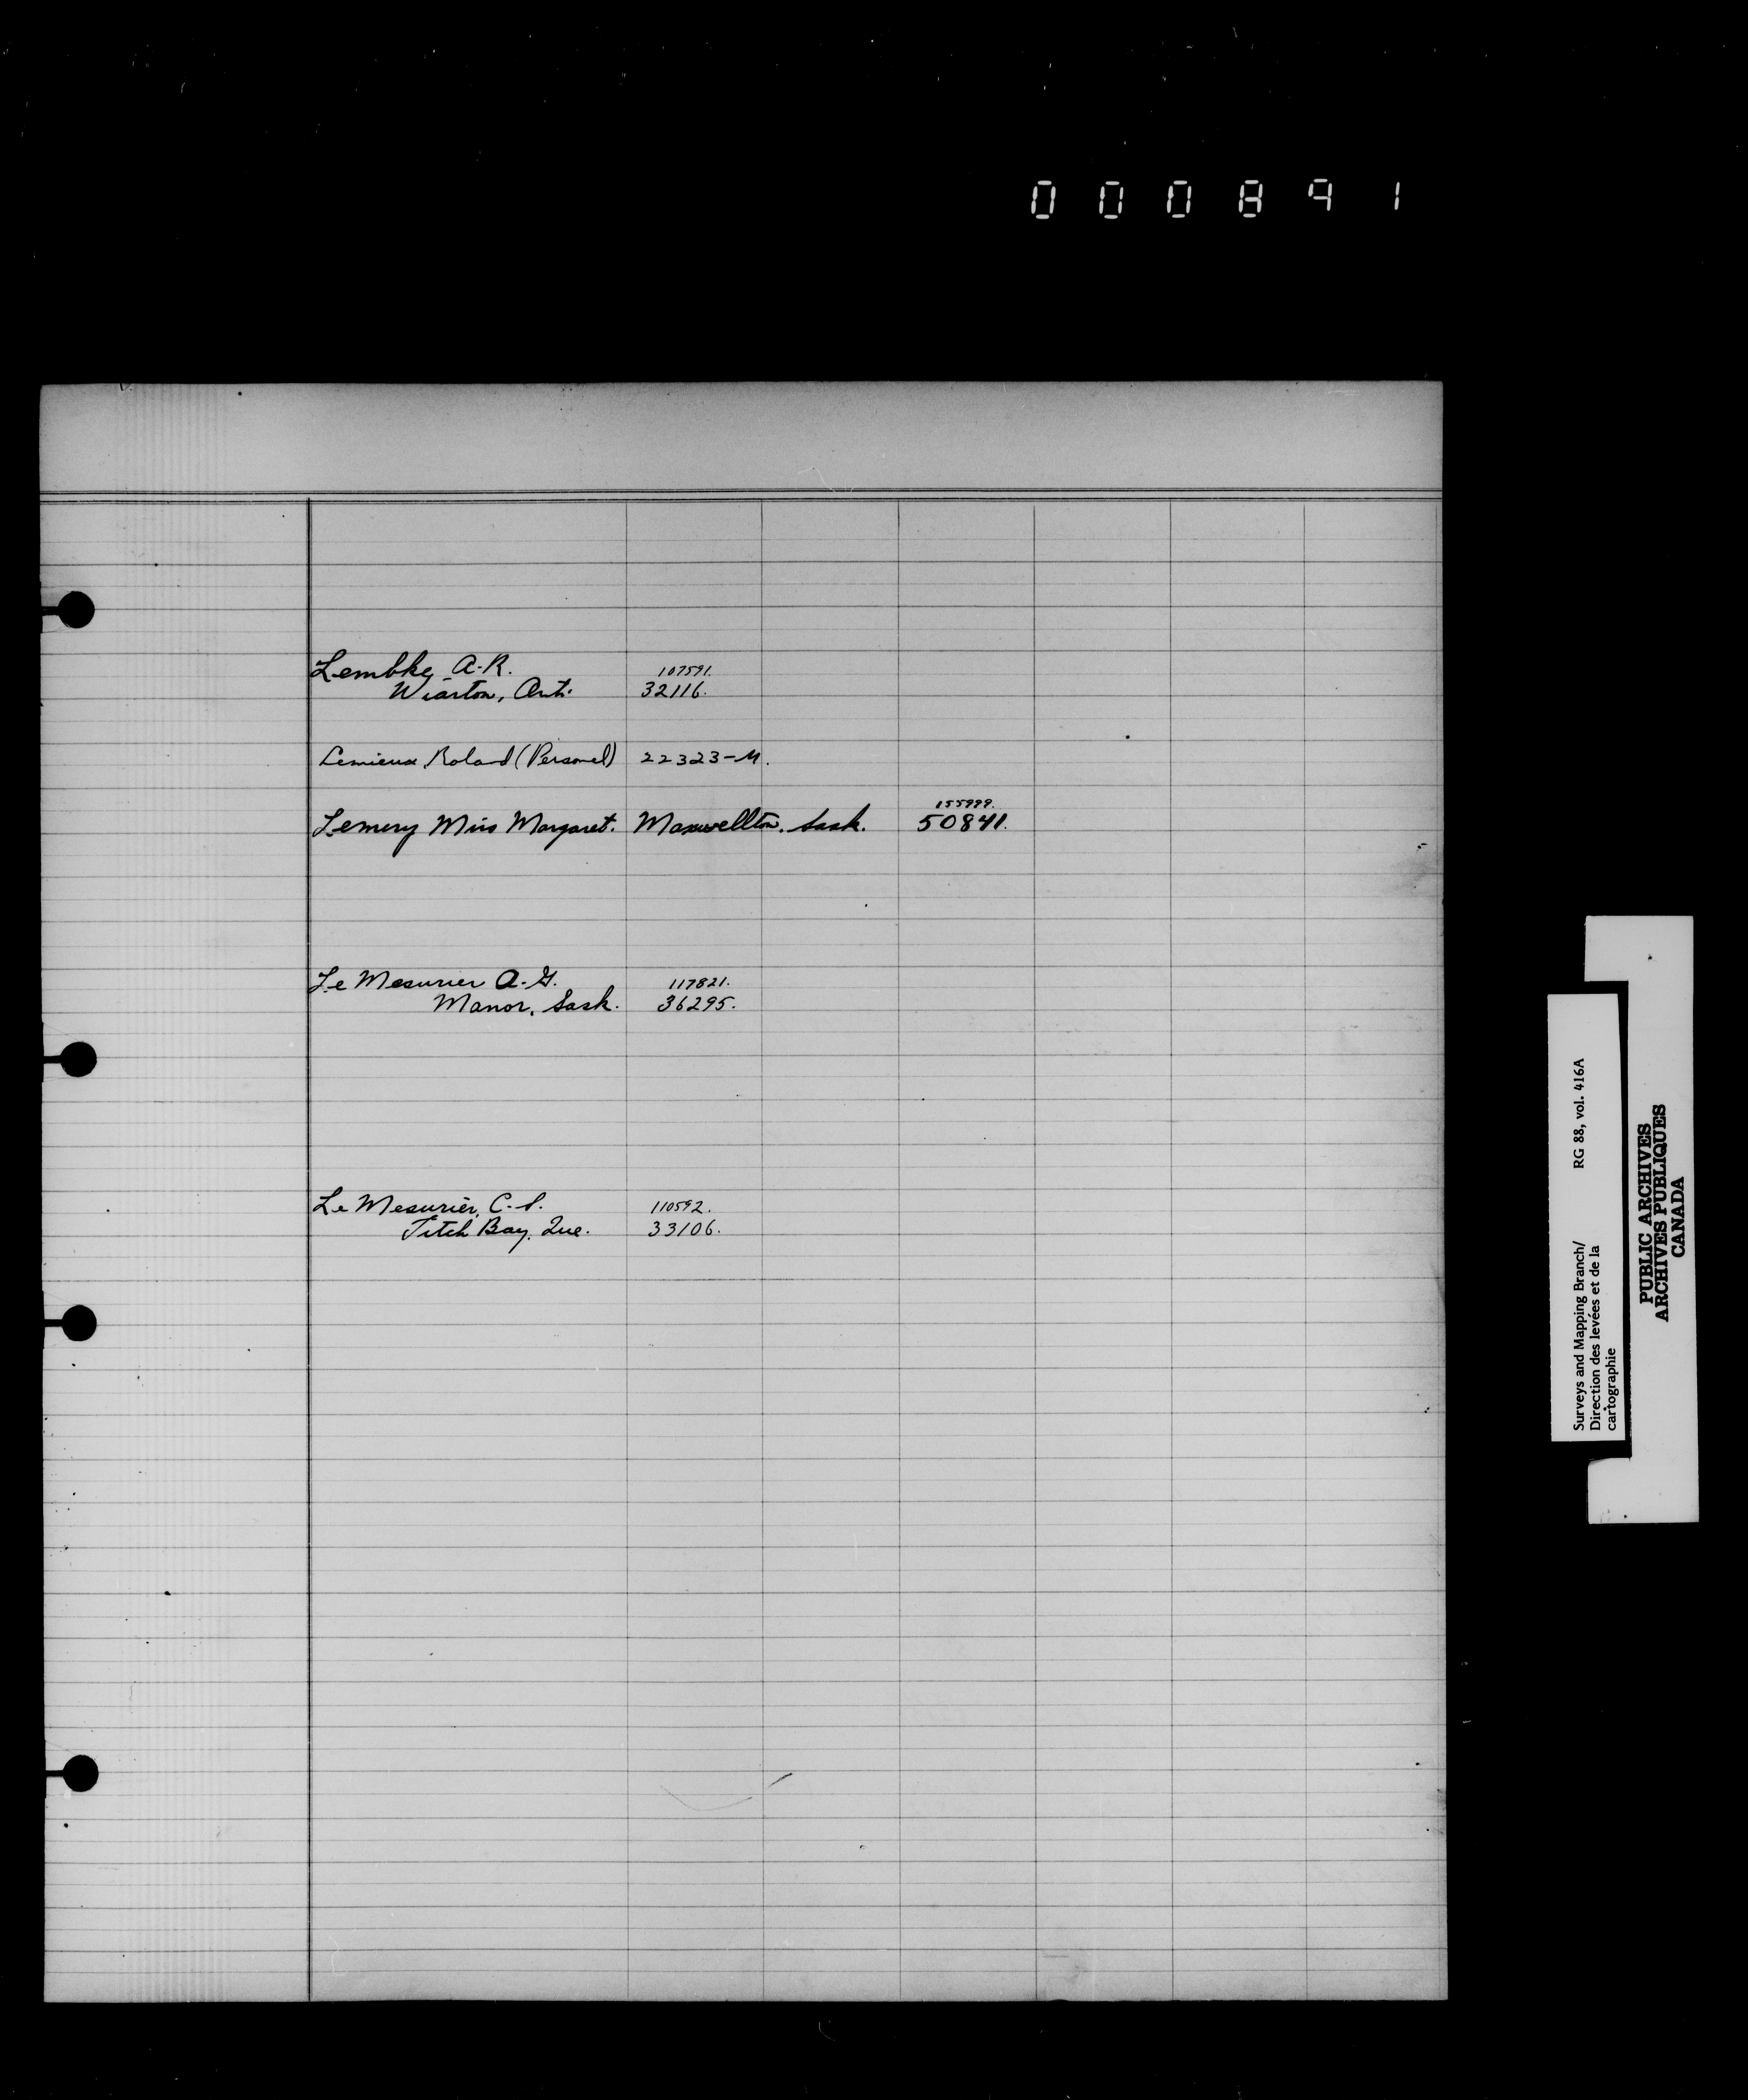 000891
Lembke, A. R. 107591.
Wiarton, Ont. 32116.
Lemieux, Roland (Personel) 22323-M.
155999.
Lemery Miss Margaret. Maxwellton, Sask. 50841.
Le Mesurier A. G. 117821.
Manor, Sask. 36295.
Le Mesurier, C. S. 110592.
Fitch Bay, Que. 33106.
Surveys and Mapping Branch/ RG 88, vol. 416A
Direction des levées et de la
cartographie
PUBLIC ARCHIVES
ARCHIVES PUBLIQUES
CANADA